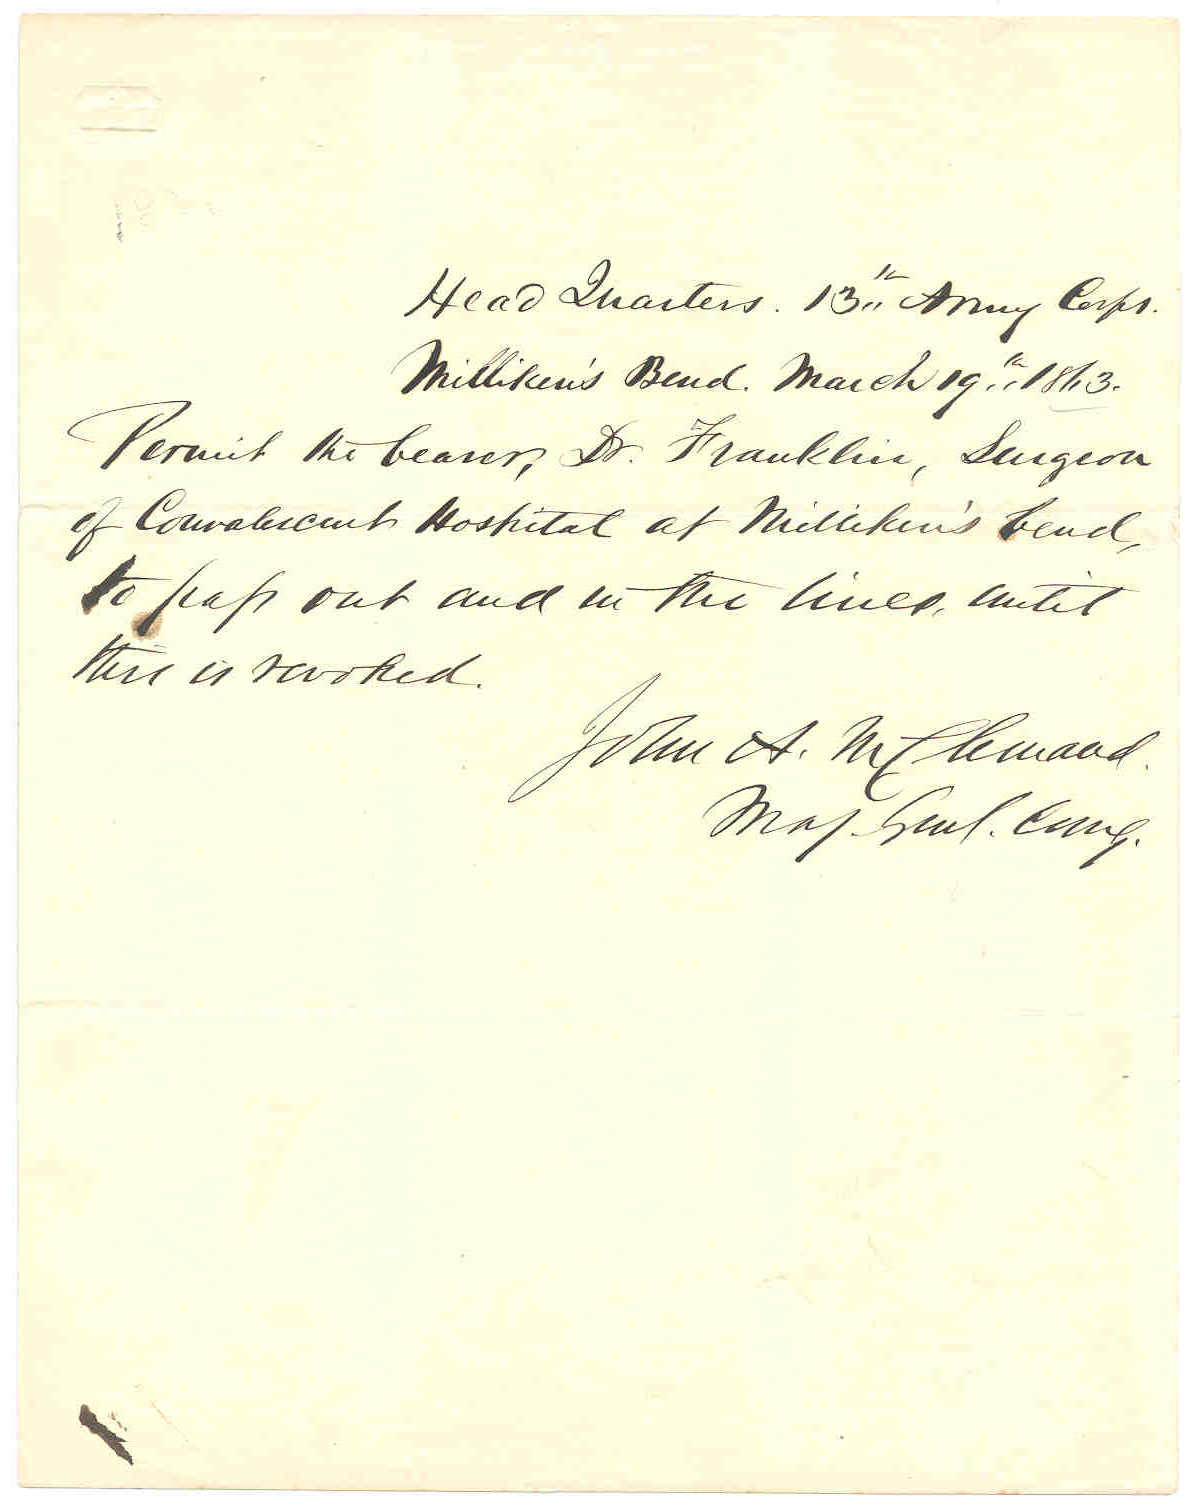 Head Quarters. 13th Army Corps.
Milliken's Bend. March 19th 1863.
Permit the bearer, Dr. Franklin, Surgeon
of Convalescent Hospital at Milliken's bend,
to pass out and in the lines, until
this is revoked.
John A. McClernand.
Maj. Genl. Comg.